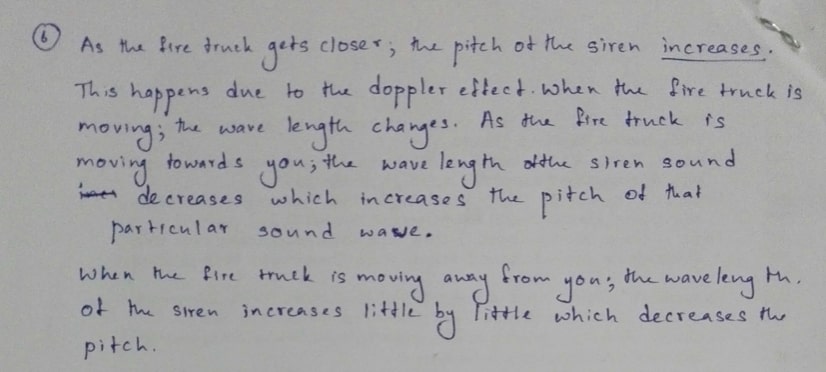 ⑥ As the fire truck gets closer; the pitch of the siren increases.
This happens due to the doppler effect. When the fire truck is
moving; the wave length changes. As the fire truck is
moving towards you; the wave length of the siren sound
decreases which increases the pitch of that
particular sound wave.
When the fire truck is moving away from you; the wave length.
of the siren increases little by little which decreases the
pitch.